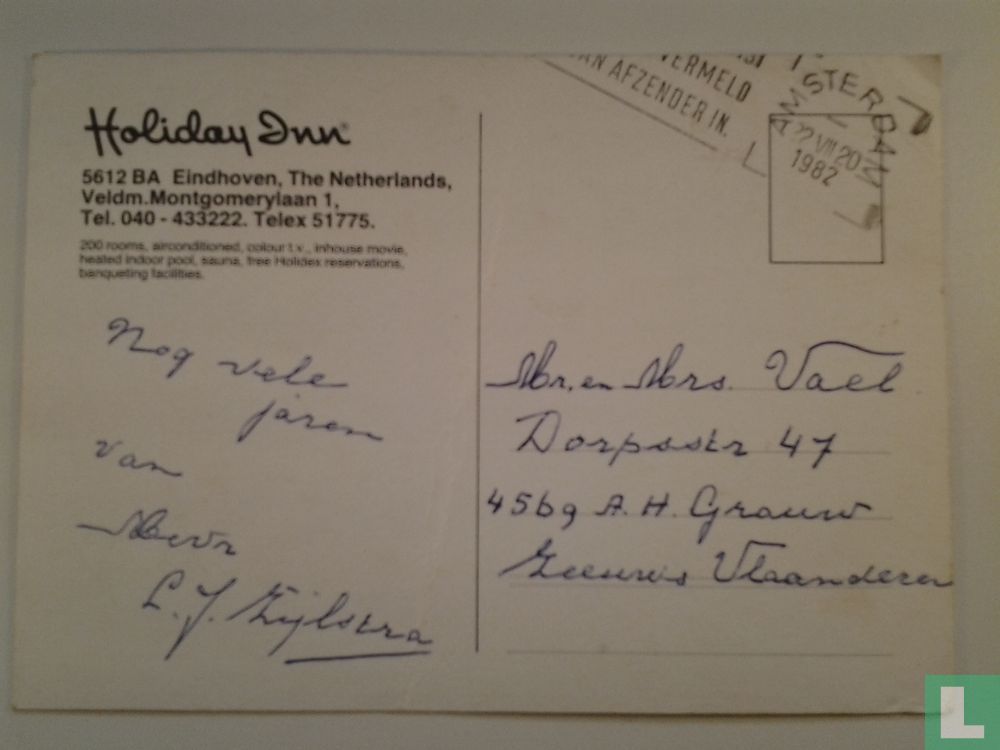 Holiday Inn
5612 BA Eindhoven, The Netherlands,
Veldm.Montgomerylaan 1,
Tel. 040 - 433222. Telex 51775.
200 rooms, airconditioned, colour t.v., inhouse movie,
heated indoor pool, sauna, free Holidex reservations,
banqueting facilities.
Nog vele
jaren
van
Mevr
L. J. Zijlstra
VERMELD
AFZENDER IN.
AMSTERDAM
22 VII 20
1982
Mr. en Mrs. Vael
Dorpsstr 47
4569 A.H. Grauw
Zeeuws Vlaanderen
L